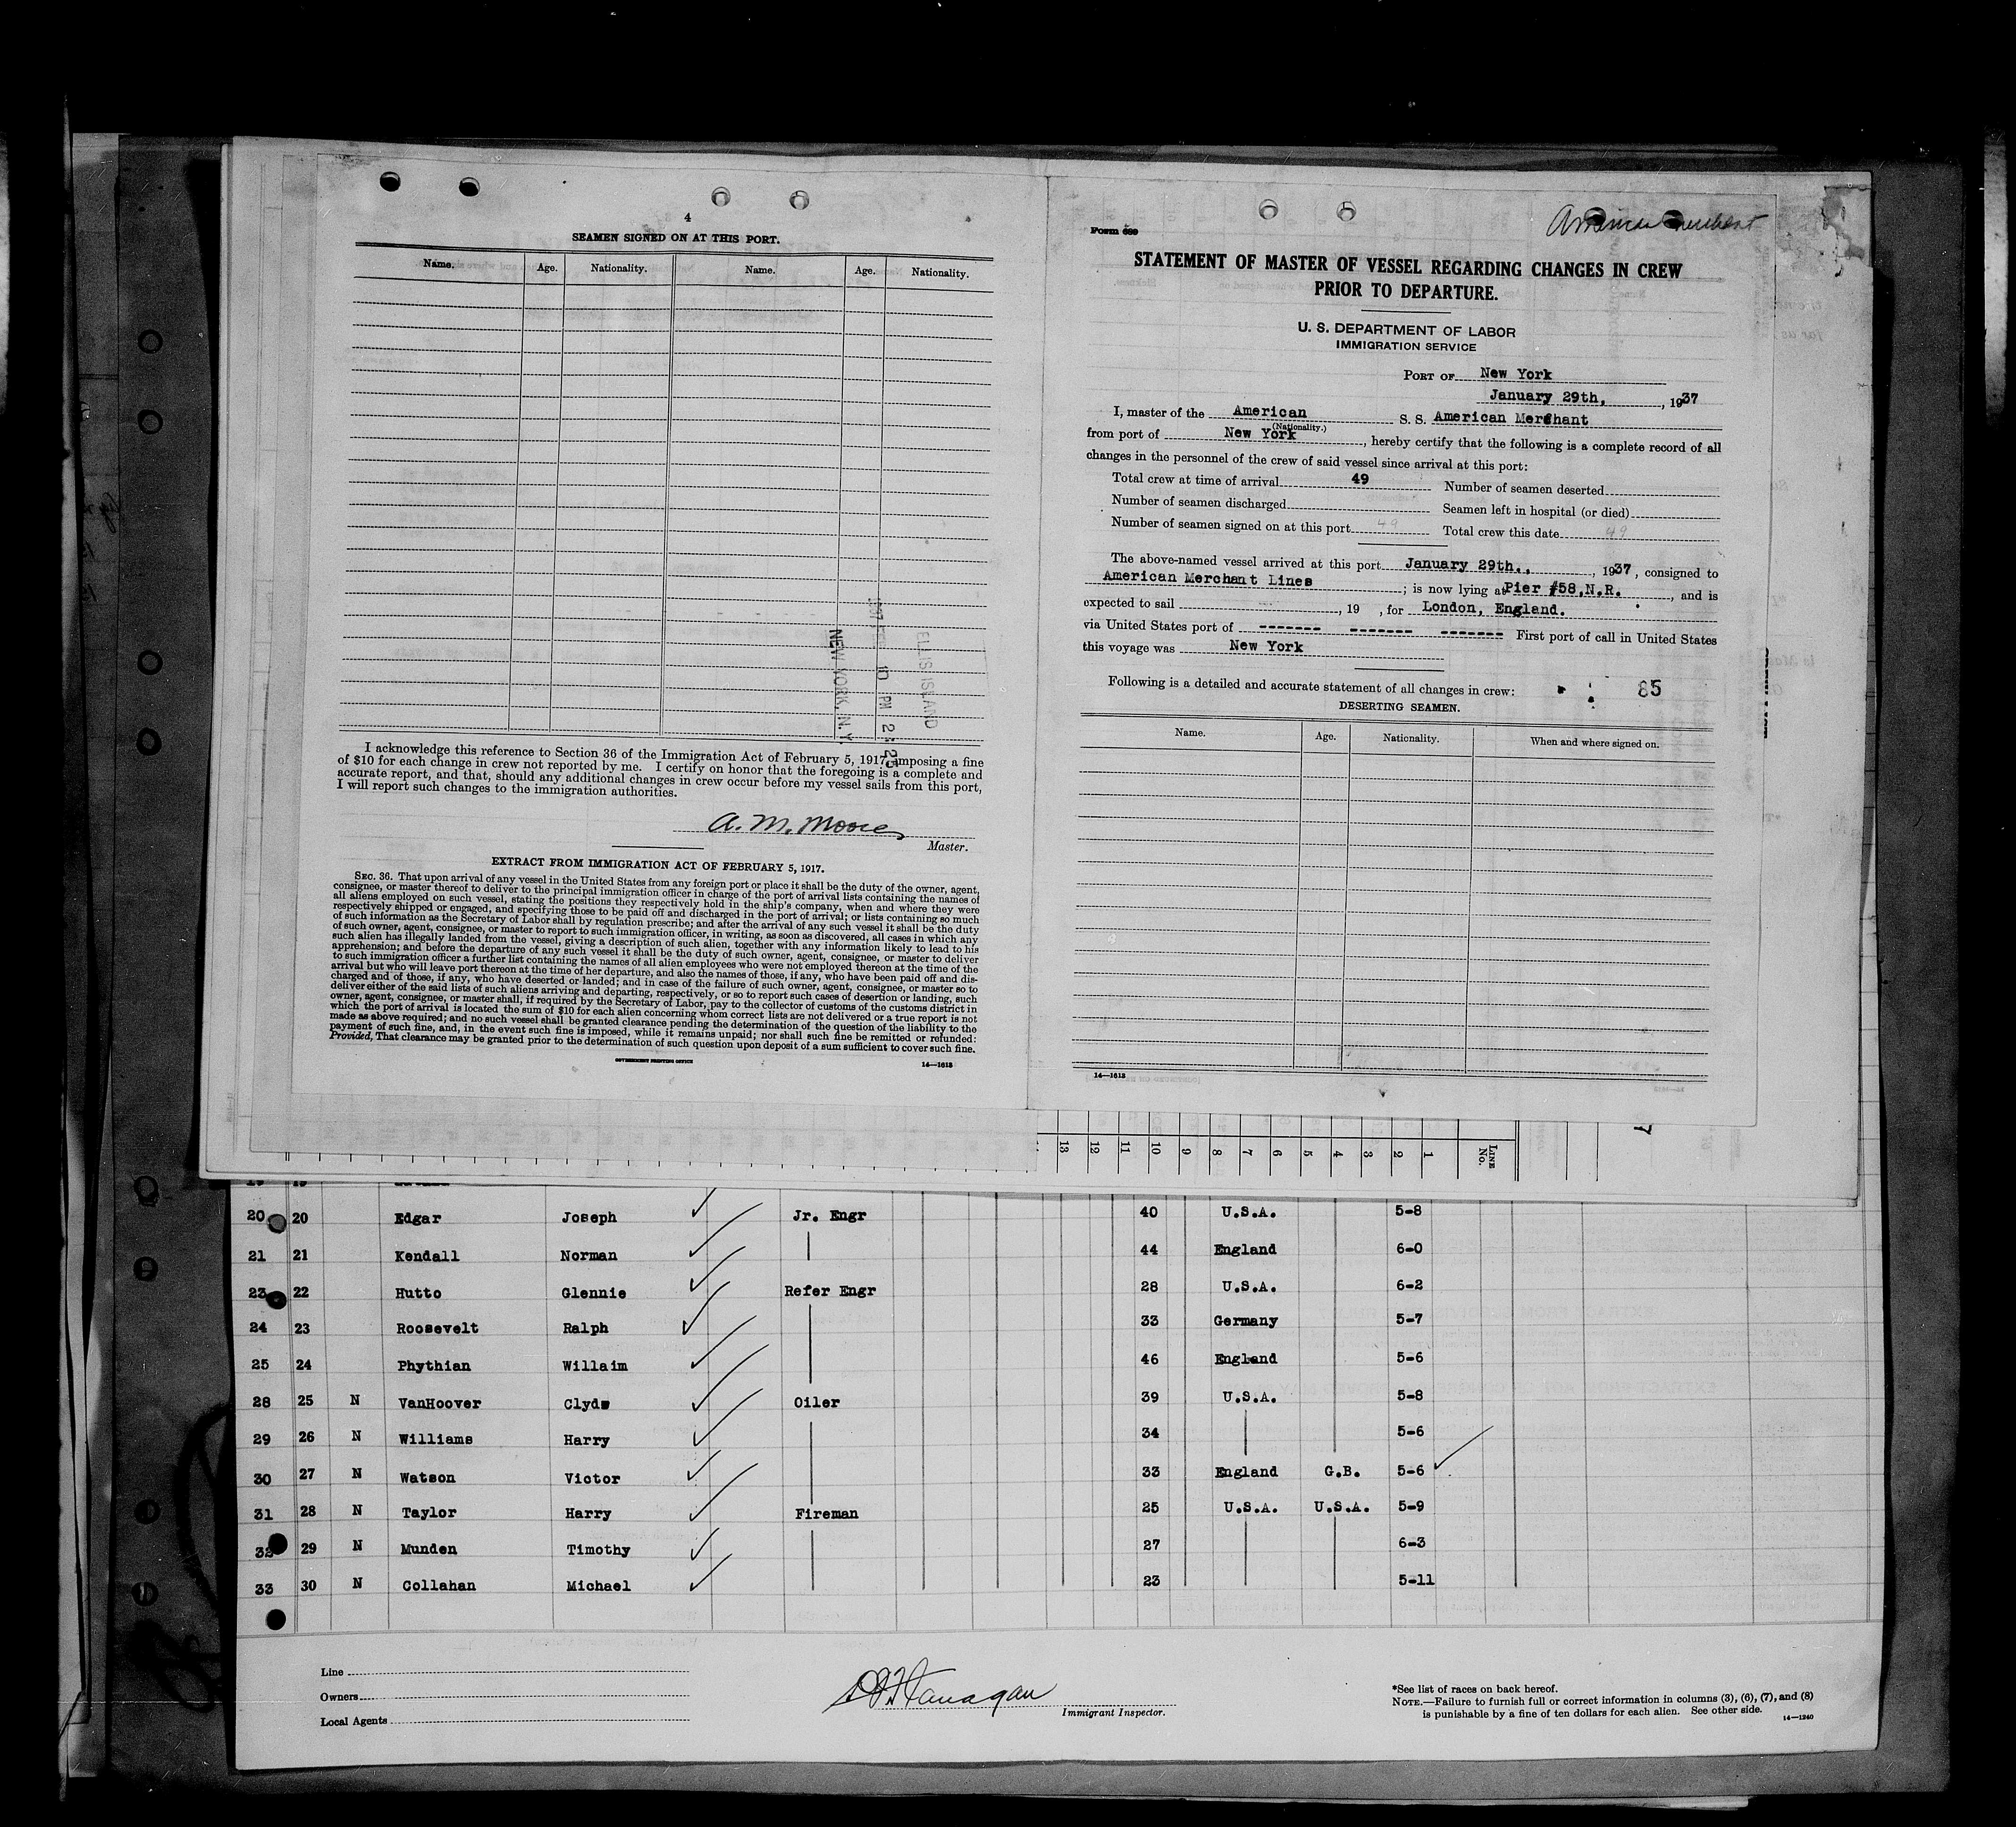 4
SEAMEN SIGNED ON AT THIS PORT.
Name. Age. Nationality. Name. Age. Nationality.
ELLIS ISLAND
10 PM 2:25
NEW YORK, N. Y.
I acknowledge this reference to Section 36 of the Immigration Act of February 5, 1917, imposing a fine
of $10 for each change in crew not reported by me. I certify on honor that the foregoing is a complete and
accurate report, and that, should any additional changes in crew occur before my vessel sails from this port,
I will report such changes to the immigration authorities.
A. M. Moore
Master.
EXTRACT FROM IMMIGRATION ACT OF FEBRUARY 5, 1917.
SEC. 36. That upon arrival of any vessel in the United States from any foreign port or place it shall be the duty of the owner, agent,
consignee, or master thereof to deliver to the principal immigration officer in charge of the port of arrival lists containing the names of
all aliens employed on such vessel, stating the positions they respectively hold in the ship's company, when and where they were
respectively shipped or engaged, and specifying those to be paid off and discharged in the port of arrival; or lists containing so much
of such information as the Secretary of Labor shall by regulation prescribe; and after the arrival of any such vessel it shall be the duty
of such owner, agent, consignee, or master to report to such immigration officer, in writing, as soon as discovered, all cases in which any
such alien has illegally landed from the vessel, giving a description of such alien, together with any information likely to lead to his
apprehension; and before the departure of any such vessel it shall be the duty of such owner, agent, consignee, or master to deliver
to such immigration officer a further list containing the names of all alien employees who were not employed thereon at the time of the
arrival but who will leave port thereon at the time of her departure, and also the names of those, if any, who have been paid off and dis-
charged and of those, if any, who have deserted or landed; and in case of the failure of such owner, agent, consignee, or master so to
deliver either of the said lists of such aliens arriving and departing, respectively, or so to report such cases of desertion or landing, such
owner, agent, consignee, or master shall, if required by the Secretary of Labor, pay to the collector of customs of the customs district in
which the port of arrival is located the sum of $10 for each alien concerning whom correct lists are not delivered or a true report is not
made as above required; and no such vessel shall be granted clearance pending the determination of the question of the liability to the
payment of such fine, and, in the event such fine is imposed, while it remains unpaid; nor shall such fine be remitted or refunded:
Provided, That clearance may be granted prior to the determination of such question upon deposit of a sum sufficient to cover such fine.
GOVERNMENT PRINTING OFFICE 14—1613
American Merchant
Form 689
STATEMENT OF MASTER OF VESSEL REGARDING CHANGES IN CREW
PRIOR TO DEPARTURE.
U. S. DEPARTMENT OF LABOR
IMMIGRATION SERVICE
PORT OF New York
January 29th, , 1937
I, master of the American S. S. American Merchant
(Nationality.)
from port of New York, hereby certify that the following is a complete record of all
changes in the personnel of the crew of said vessel since arrival at this port:
Total crew at time of arrival 49 Number of seamen deserted
Number of seamen discharged Seamen left in hospital (or died)
Number of seamen signed on at this port 49 Total crew this date 49
The above-named vessel arrived at this port January 29th., , 1937, consigned to
American Merchant Lines ; is now lying at Pier #58,N.R. , and is
expected to sail , 19 , for London, England.
via United States port of ------- ------- ------- First port of call in United States
this voyage was New York
Following is a detailed and accurate statement of all changes in crew: 85
DESERTING SEAMEN.
Name. Age. Nationality. When and where signed on.
14—1613
13 12 11 10 9 8 7 6 5 4 3 2 1 LINE No.
19 19
20 20 Edgar Joseph Jr. Engr 40 U.S.A. 5-8
21 21 Kendall Norman 44 England 6-0
23 22 Hutto Glennie Refer Engr 28 U.S.A. 6-2
24 23 Roosevelt Ralph 33 Germany 5-7
25 24 Phythian Willaim 46 England 5-6
28 25 N VanHoover Clyde Oiler 39 U.S.A. 5-8
29 26 N Williams Harry 34 5-6
30 27 N Watson Victor 33 England G.B. 5-6
31 28 N Taylor Harry Fireman 25 U.S.A. U.S.A. 5-9
32 29 N Munden Timothy 27 6-3
33 30 N Collahan Michael 23 5-11
Line
Owners
Local Agents
Flanagan
Immigrant Inspector.
*See list of races on back hereof.
NOTE.—Failure to furnish full or correct information in columns (3), (6), (7), and (8)
is punishable by a fine of ten dollars for each alien. See other side.
14—1240